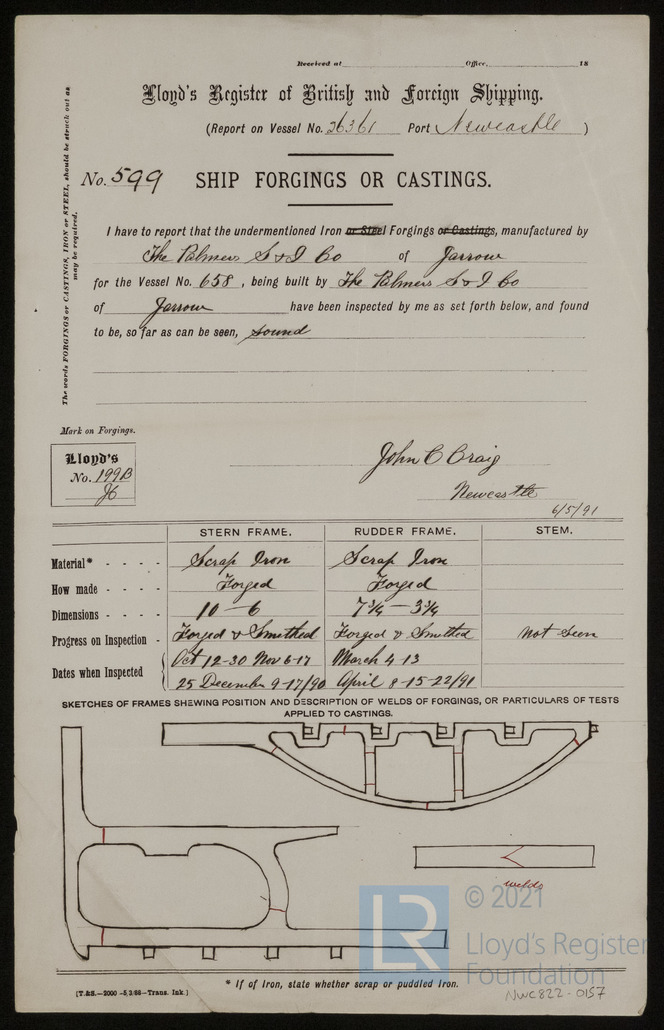 Received at Office, 18
Lloyd's Register of British and Foreign Shipping.
(Report on Vessel No. 26361 Port Newcastle )
No. 599 SHIP FORGINGS OR CASTINGS.
The words FORGINGS or CASTINGS, IRON or STEEL, should be struck out as
may be required.
I have to report that the undermentioned Iron or Steel Forgings or Castings, manufactured by
The Palmers S & I Co of Jarrow
for the Vessel No. 658 , being built by The Palmers S & I Co
of Jarrow have been inspected by me as set forth below, and found
to be, so far as can be seen, sound
Mark on Forgings.
Lloyd's
No. 199B
JC
John C Craig
Newcastle
6/5/91
STERN FRAME. RUDDER FRAME. STEM.
Material* - - - - Scrap Iron Scrap Iron
How made - - - - Forged Forged
Dimensions - - - - 10 - 6 7¾ - 3¾
Progress on Inspection - Forged & Smithed Forged & Smithed not seen
Dates when Inspected Oct 12-30 Nov 6-17 March 4-13
25 December 9-17/90 April 8-15-22/91
SKETCHES OF FRAMES SHEWING POSITION AND DESCRIPTION OF WELDS OF FORGINGS, OR PARTICULARS OF TESTS
APPLIED TO CASTINGS.
welds
LR © 2021
Lloyd's Register
Foundation
* If of Iron, state whether scrap or puddled Iron.
[T.&S.—2000—5/3/88—Trans. Ink.]
NWC822-0157